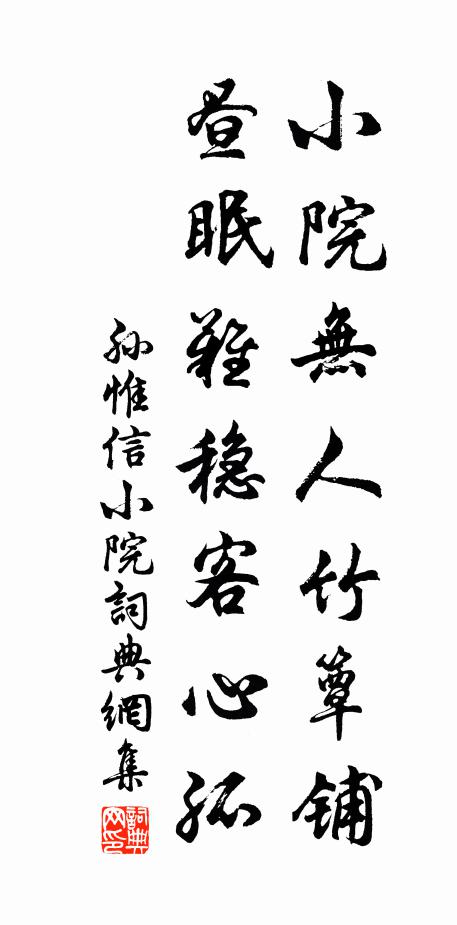 小院無人竹簟铺
昼眠難稳客心孤
孙惟信小院詞典網集
詞典网印